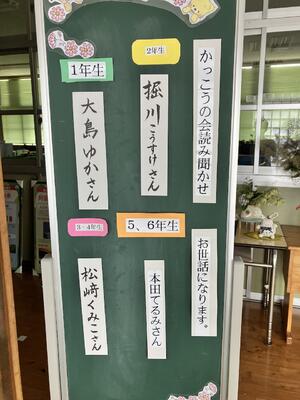 かっこうの会読み聞かせ
お世話になります。
1年生
大島ゆかさん
2年生
堀川こうすけさん
3~4年生
松﨑くみこさん
5、6年生
本田てるみさん